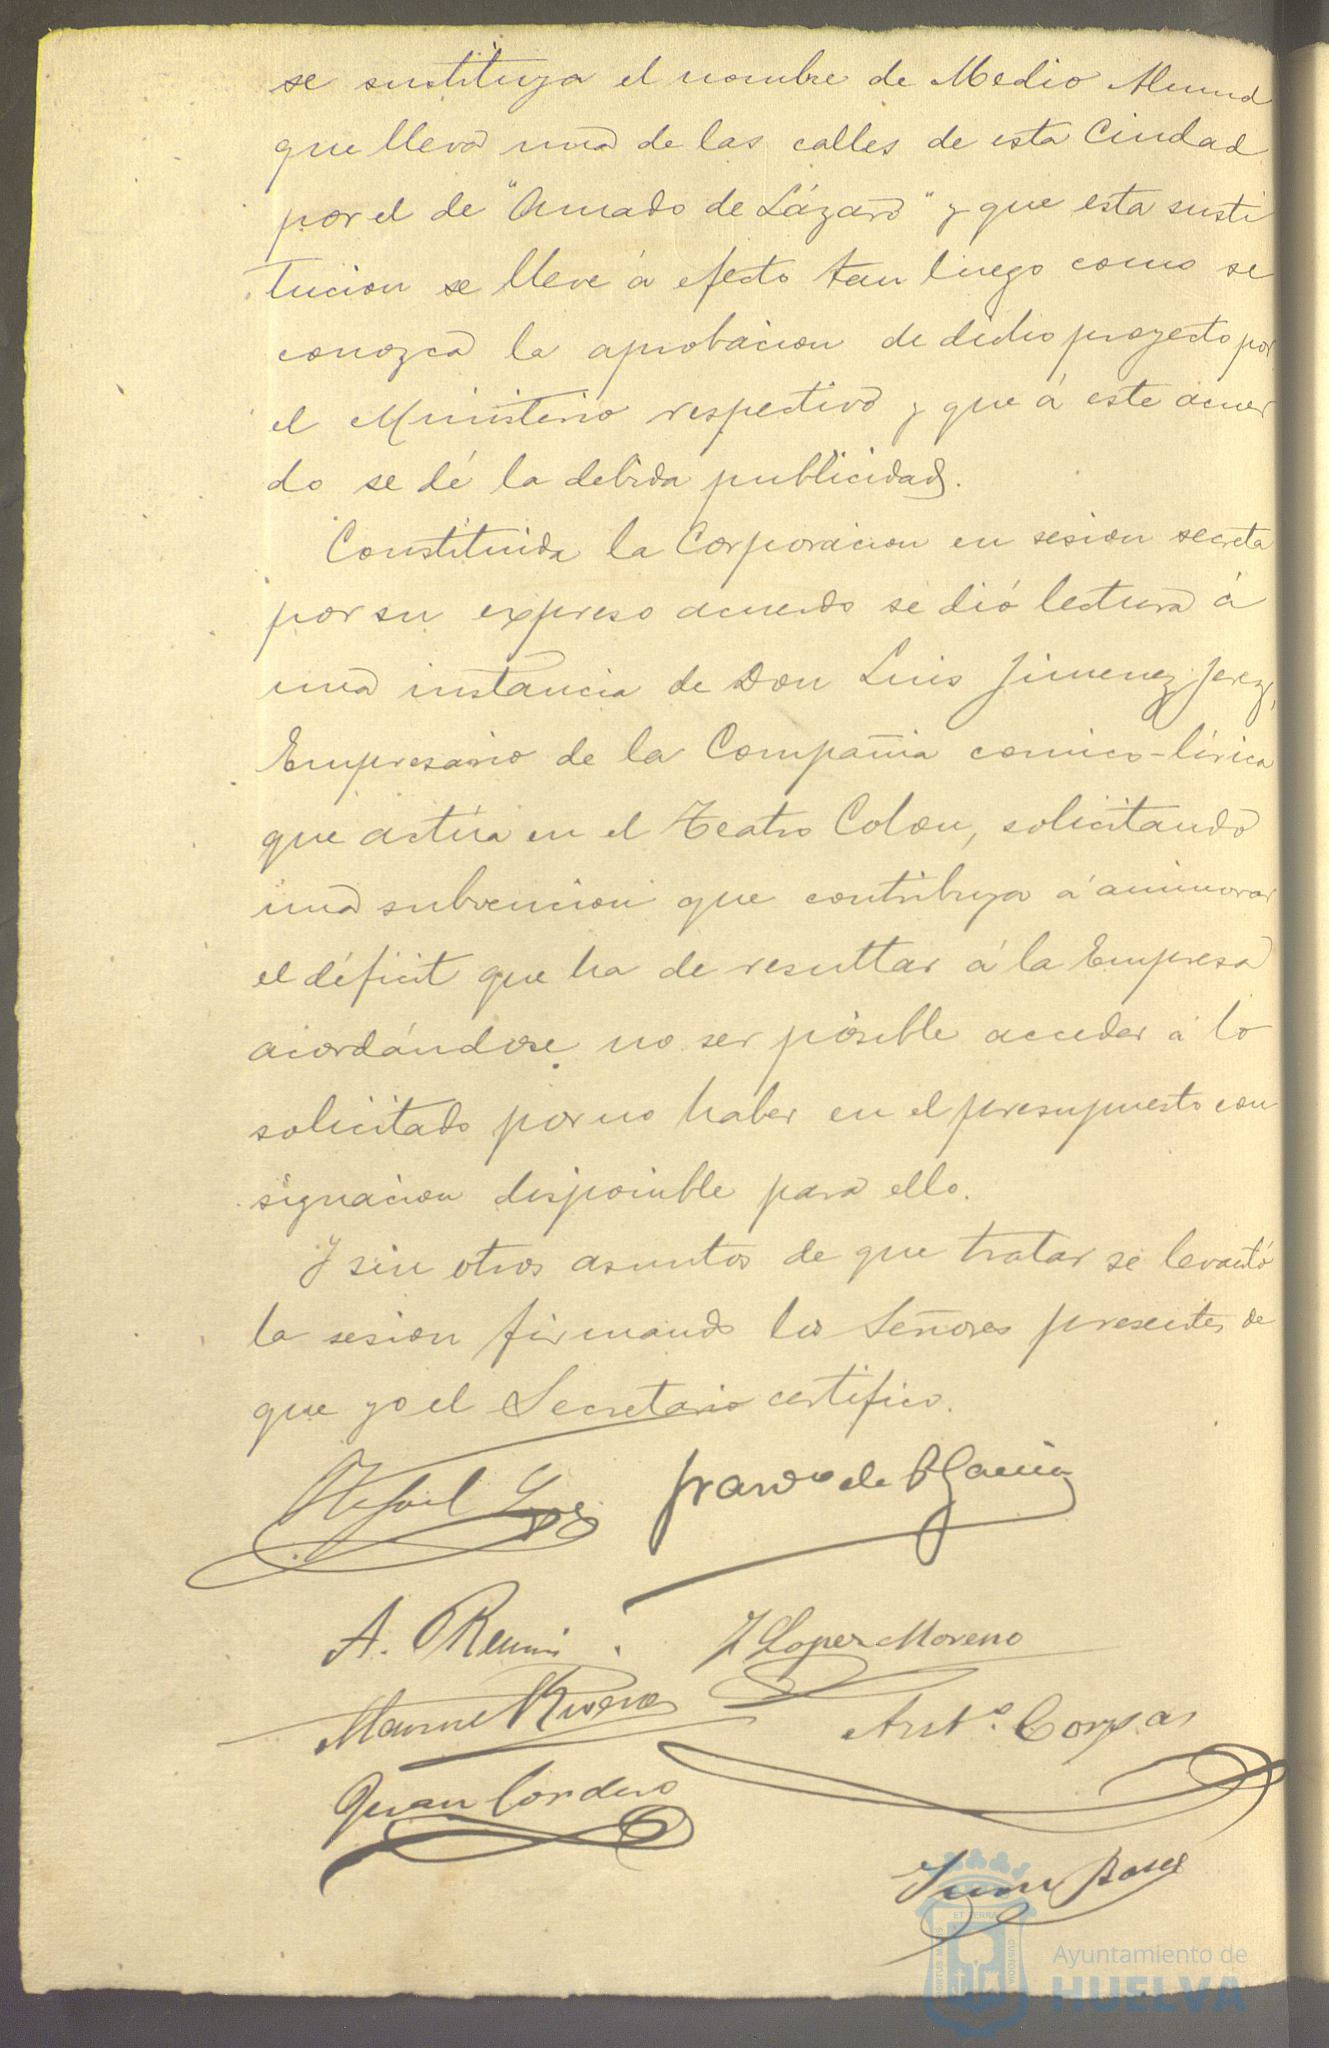 se sustituya el nombre de Medio Almud
que lleva una de las calles de esta Ciudad
por el de "Amado de Lázaro" y que esta susti
tucion se lleve á efecto tan luego como se
conozca la aprobacion de dicho proyecto por
el Ministerio respectivo y que á este acuer
do se dé la debida publicidad.
Constituida la Corporacion en sesion secreta
por su expreso acuerdo se dió lectura á
una instancia de Don Luis Jimenez Jerez,
Empresario de la Compañia comico-lírica
que actúa en el Teatro Colon, solicitando
una subvencion que contribuya á aminorar
el déficit que ha de resultar á la Empresa
acordándose no ser posible acceder á lo
solicitado por no haber en el presupuesto con
signacion disponible para ello.
Y sin otros asuntos de que tratar se levantó
la sesion firmando los Señores presentes de
que yo el Secretario certifico.
Franco de P García
A.
J Lopez Moreno
Manuel Rivera
Anto. Corpas
Juan Cordero
Juan
ET TERRAE
PORTUS MARIS
CUSTODIA
Ayuntamiento de
HUELVA